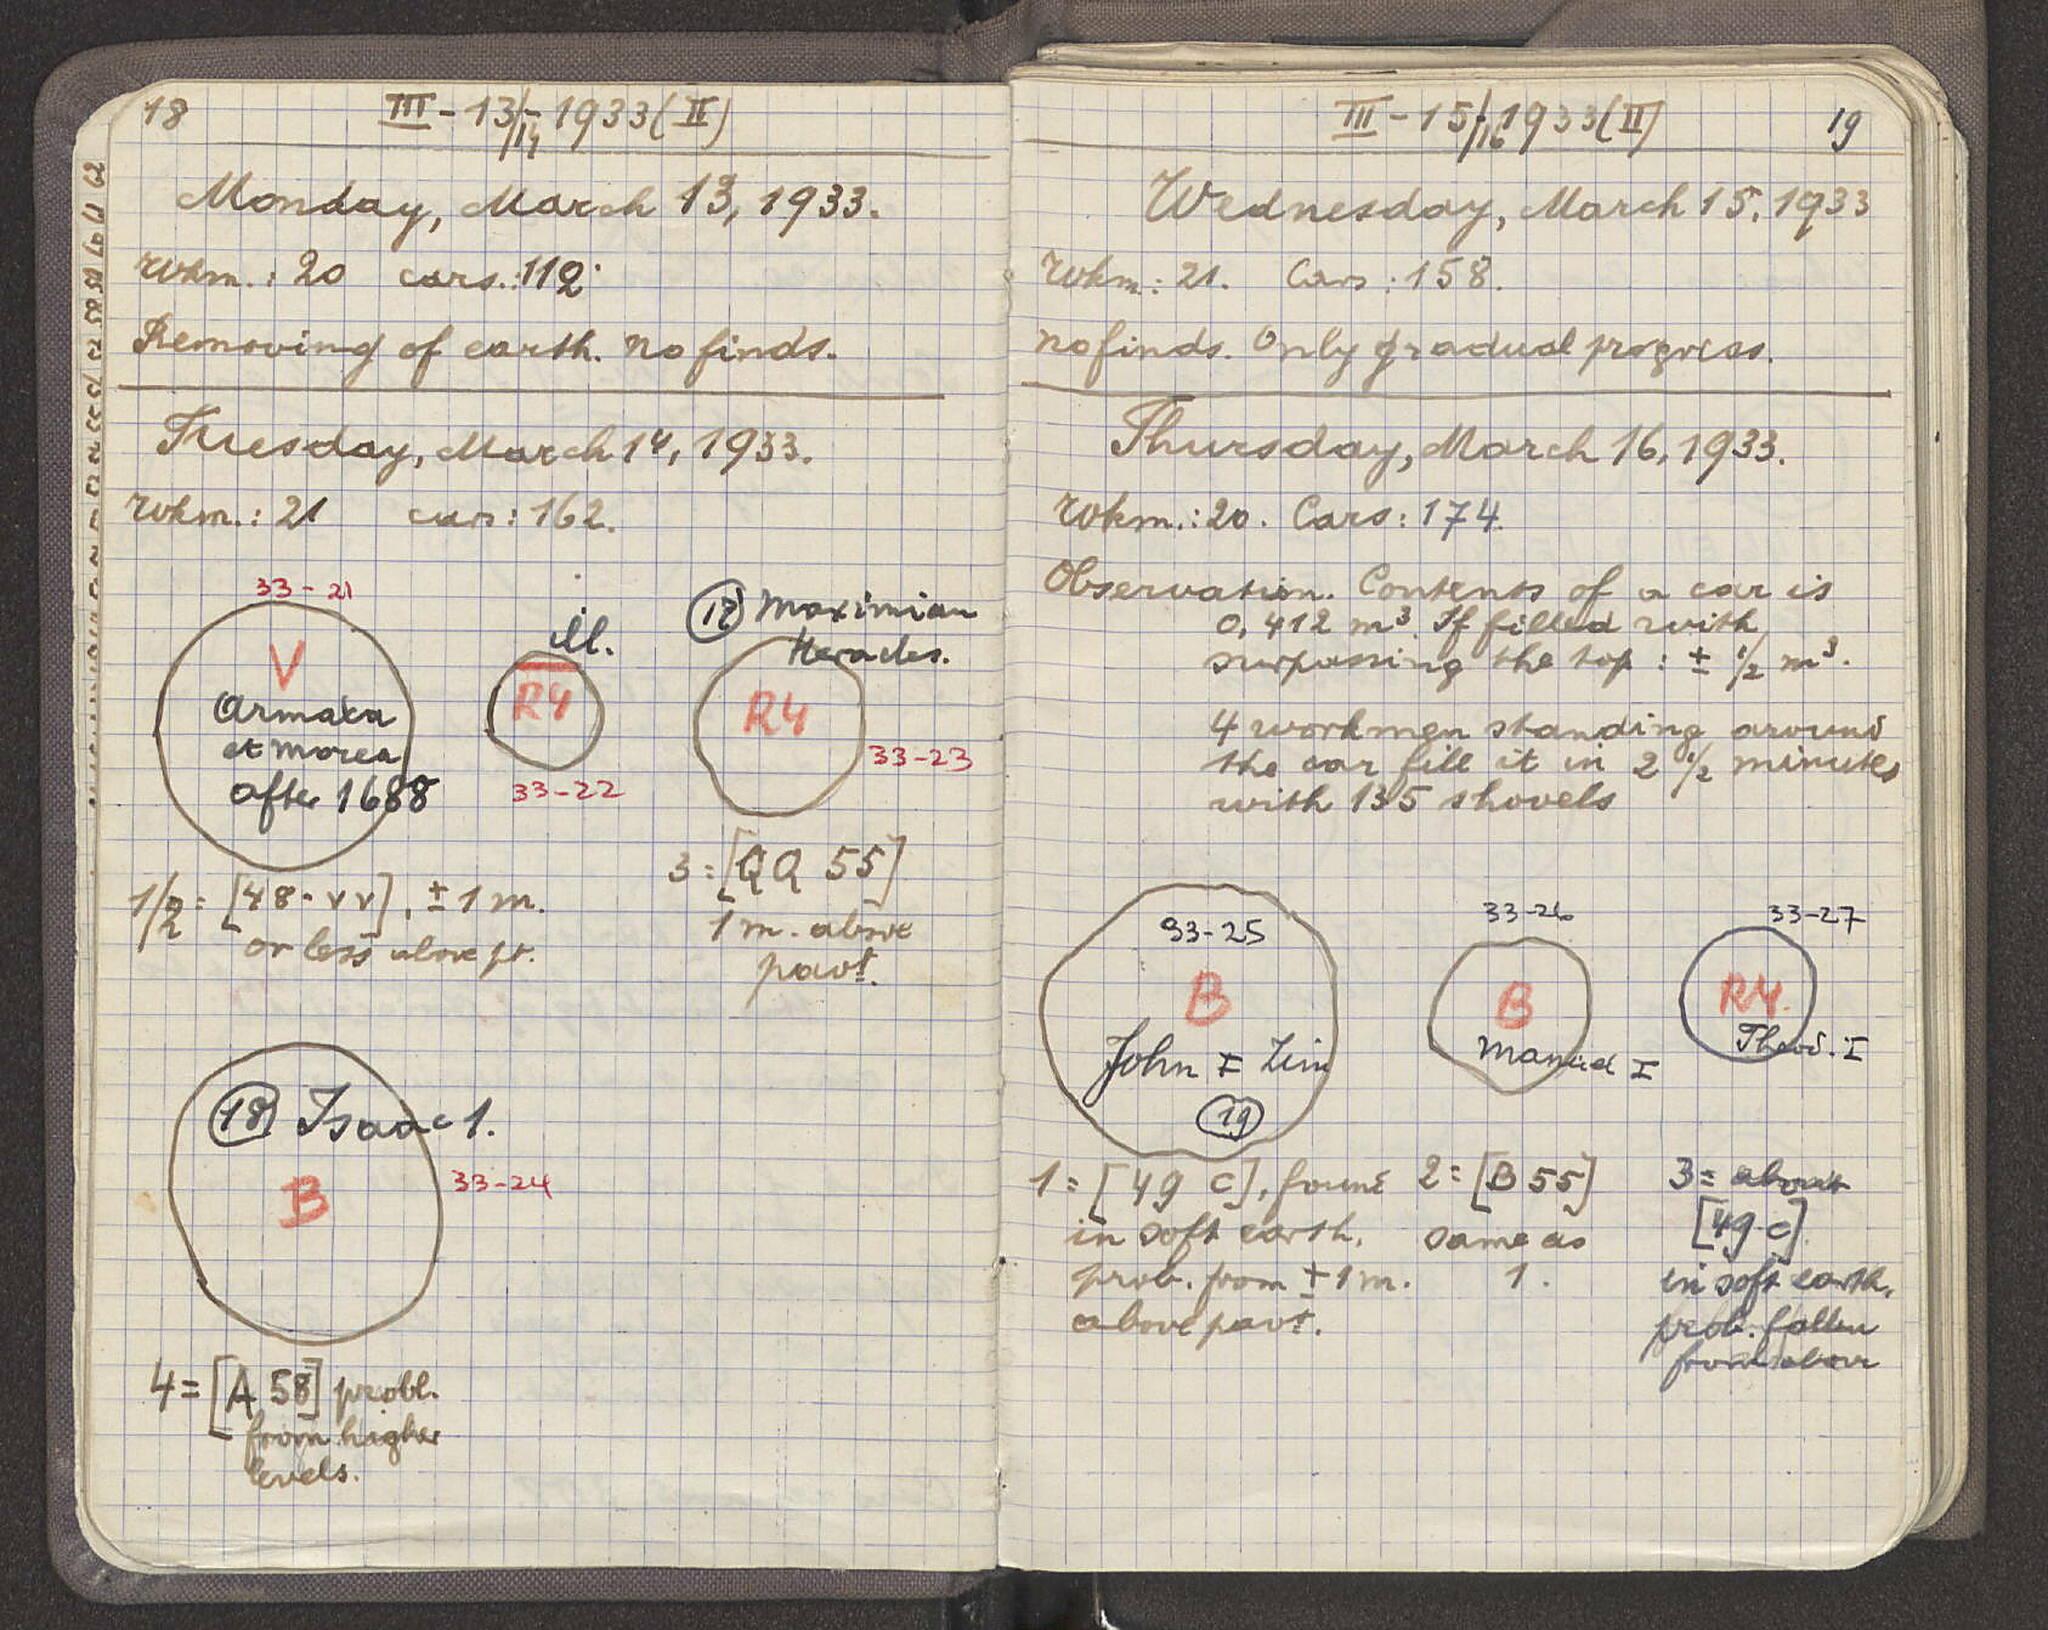 18
III - 13/14 - 1933 (II)
Monday, March 13, 1933.
Wkm.: 20 cars.: 112.
Removing of earth. No finds.
Tuesday, March 14, 1933.
Wkm.: 21 cars: 162.
33-21
V
Armata
et Morea
after 1688
ill.
R4
33-22
(17) Maximian
Heracles.
R4
33-23
1/2 = [48-VV], ± 1 m.
or less above pt.
3 = [QQ 55]
1 m. above
pavt.
(18) Isaac 1.
B
33-24
4 = [A 58] probl.
from higher
levels.
III - 15/16 - 1933 (II)
19
Wednesday, March 15, 1933
Wkm.: 21. Cars: 158.
No finds. Only gradual progress.
Thursday, March 16, 1933.
Wkm.: 20. Cars: 174.
Observation. Contents of a car is
0,412 m³. If filled with
surpassing the top: ± 1/2 m³.
4 workmen standing around
the car fill it in 2 1/2 minutes
with 135 shovels
33-25
B
John I Zim
(19)
33-26
B
Manuel I
33-27
R4.
Theod. I
1 = [49 C], found
in soft earth,
prob. from ± 1 m.
above pavt.
2 = [B 55]
same as
1.
3 = about
[49-C]
in soft earth,
prob. fallen
from above